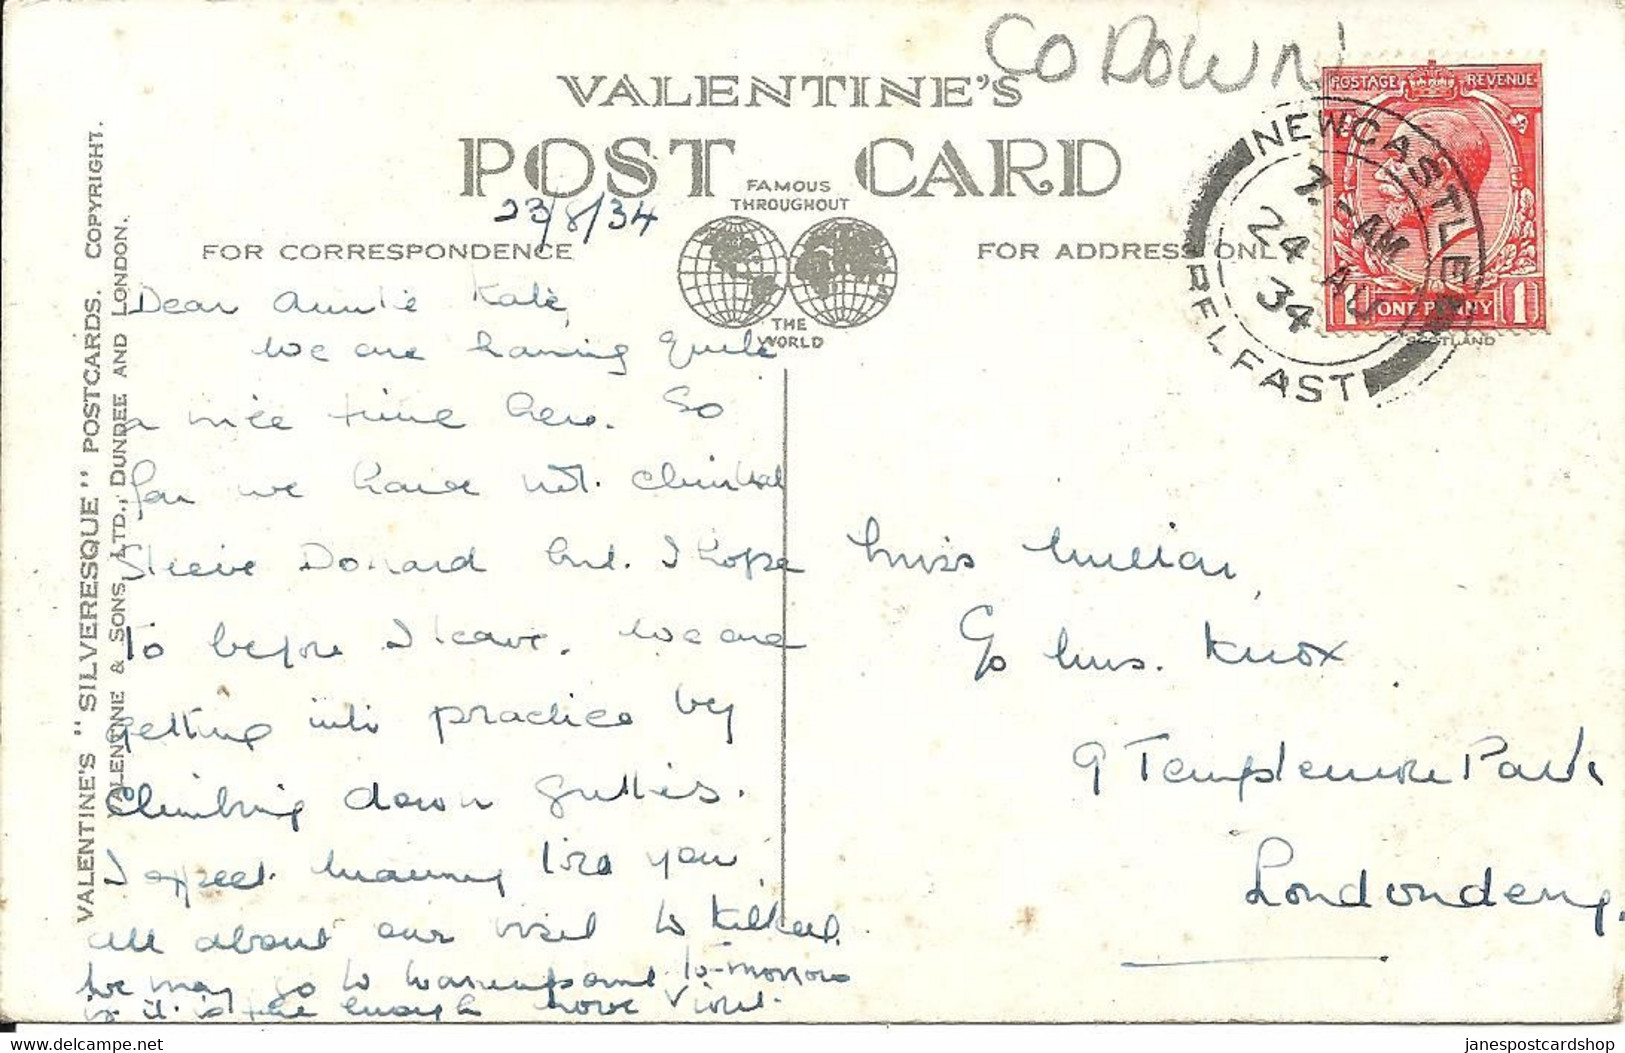 CO DOWN
VALENTINE'S
POST CARD
FAMOUS
THROUGHOUT
THE
WORLD
23/8/34
FOR CORRESPONDENCE
FOR ADDRESS ONLY
POSTAGE REVENUE
1 ONE PENNY 1
SCOTLAND
NEWCASTLE
7 - AM
24 AU
34
BELFAST
VALENTINE'S "SILVERESQUE" POSTCARDS. COPYRIGHT.
VALENTINE & SONS, LTD., DUNDEE AND LONDON.
Dear Auntie Kate,
We are having quite
a nice time here. So
far we have not climbed
Slieve Donard but I hope
to before I leave. We are
getting into practice by
climbing down gullies.
I expect told you
all about our visit to Kilkeel.
We may go to Warrenpoint to-morrow
if it is
Miss Millar,
c/o Mrs. Knox
9 Templemore Park
Londonderry.
janespostcardshop
www.delcampe.net